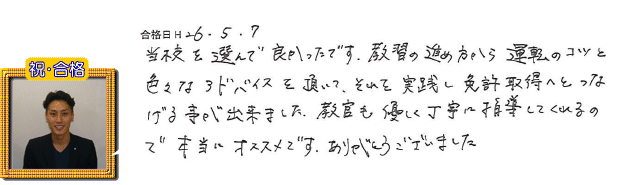 合格日 H26.5.7
当校を選んで良かったです。教習の進め方から運転のコツと
色々なアドバイスを頂いて、それを実践し免許取得へとつな
げる事が出来ました。教官も優しく丁寧に指導してくれるの
で本当にオススメです。ありがとうございました
祝・合格